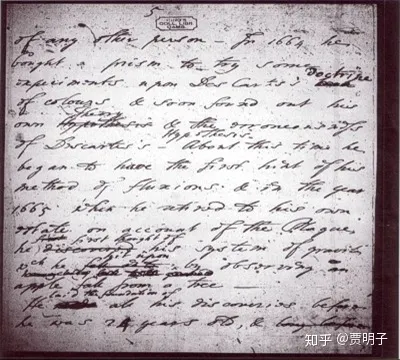 5
KING'S
COLL. LIBR.
CAMB.
of any other person – In 1664 he
bought a prism to try some
experiments upon Des Cartes's doctrine
of colours & soon found out his
own Theory & the erroneousness
of Descartes's Hypothesis – About this time he
began to have the first hint of his
method of fluxions & in the year
1665 when he retired to his own
estate on account of the Plague
he first thought of his system of gravity
wch he hit upon by observing an
apple fall from a tree
He laid the foundation of all his discoveries before
he was 24 years old, &
知乎 @贾明子